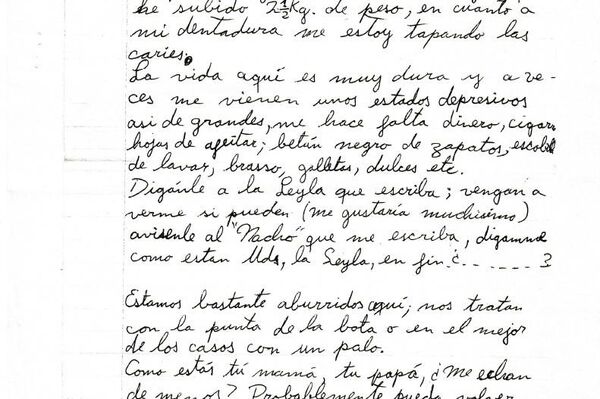 he subido 2 1/2 Kg. de peso, en cuanto a
mi dentadura me estoy tapando las
caries.
La vida aquí es muy dura y a ve-
ces me vienen unos estados depresivos
asi de grandes, me hace falta dinero, cigarr
hojas de afeitar; betún negro de zapatos, escobil
de lavar, brasso, galletas, dulces etc.
Digánle a la Leyla que escriba; vengan a
verme si pueden (me gustaría muchisimo)
avisenle al "Nacho" que me escriba, diganme
como estan Uds, la Leyla, en fin ¿.......?
Estamos bastante aburridos aquí; nos tratan
con la punta de la bota o en el mejor
de los casos con un palo.
Como estás tú mamá, tu papá, ¿Me echan
de menos? Probablemente pueda volver